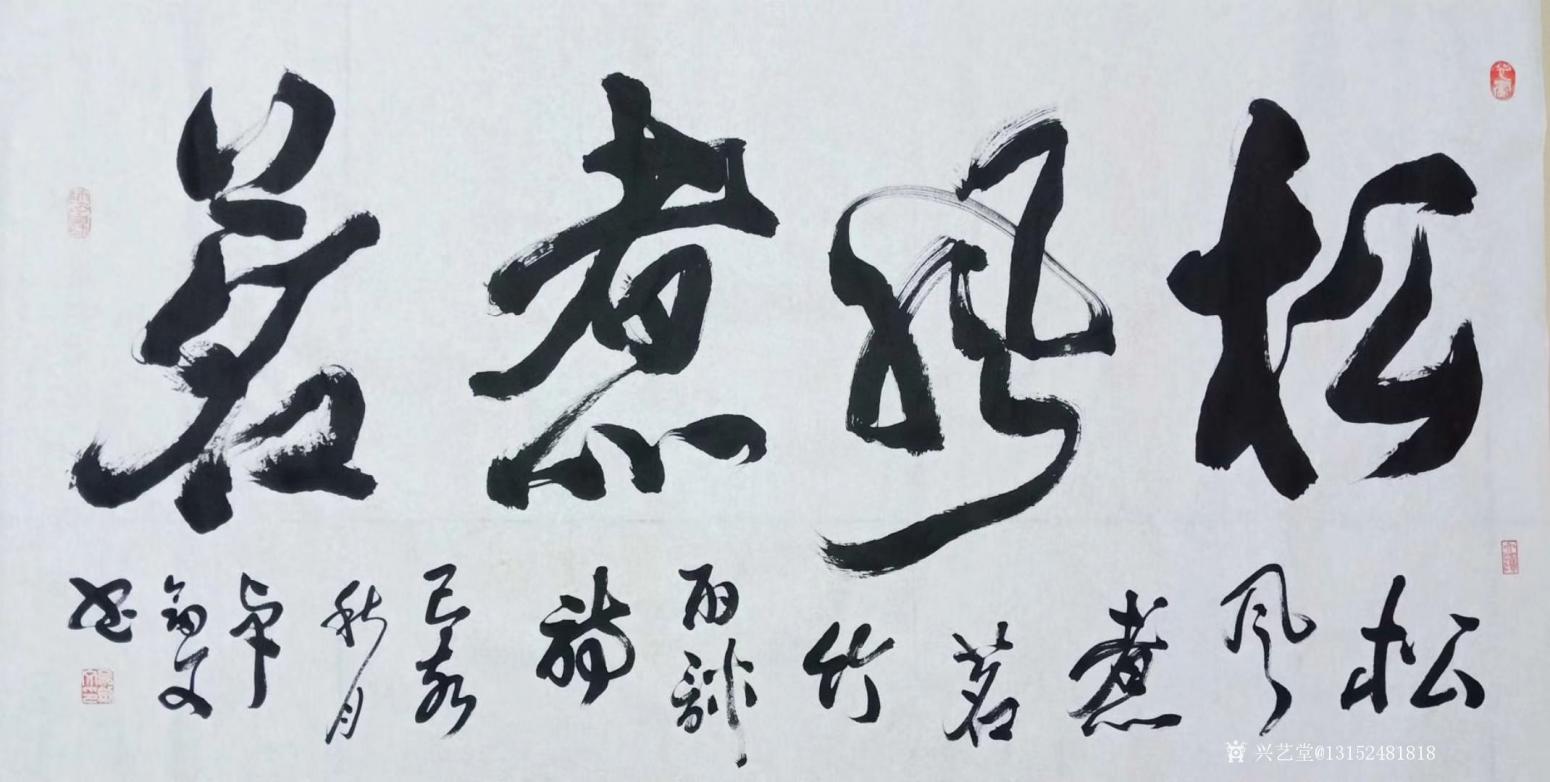 松風煮茗
松风煮茗竹雨谈詩
己亥秋月
文
兴艺堂@13152481818